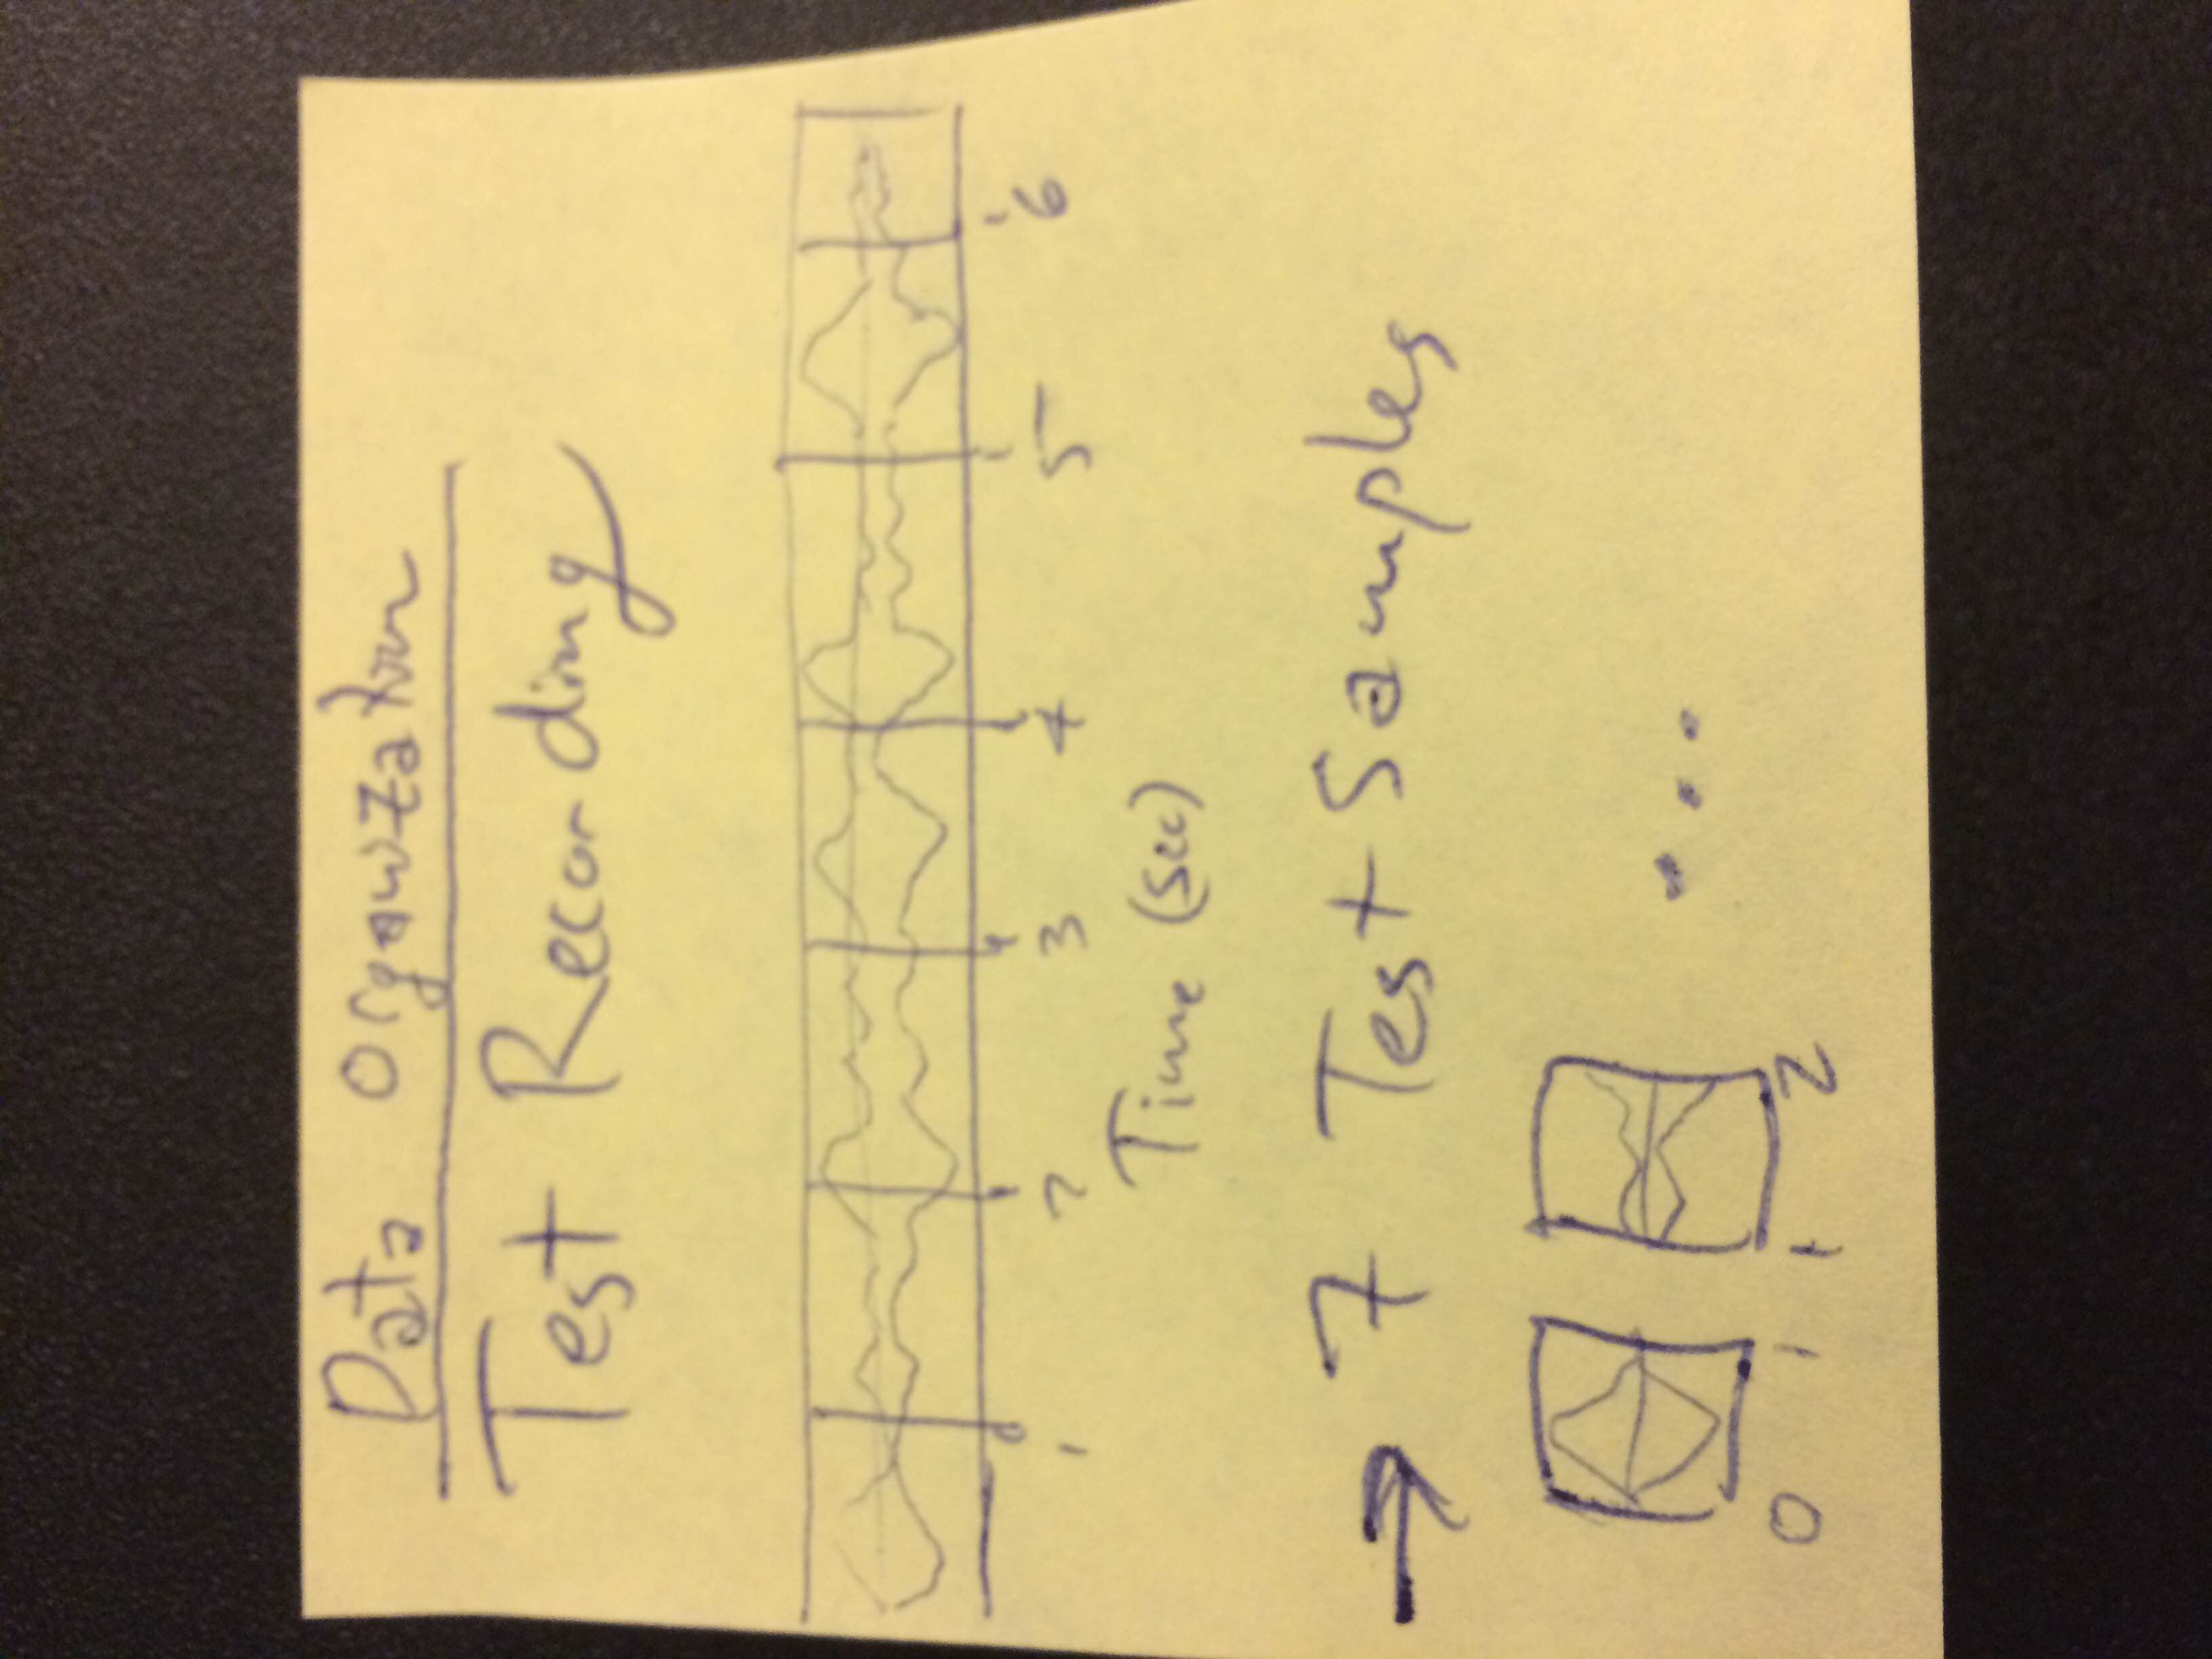 Data Organization
Test Recording
1 2 3 4 5 6
Time (sec)
→ 7 Test Samples
...
0 1 1 2